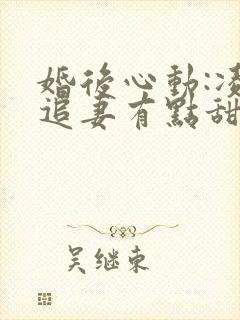 婚後心動:凌
追妻有點甜
吴继东